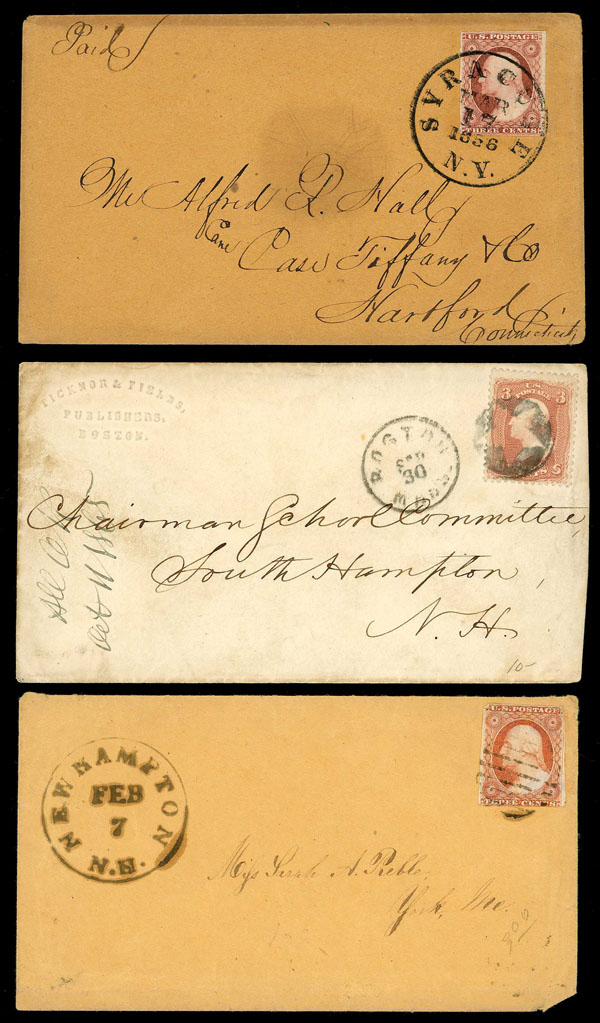 Paid
U.S. POSTAGE
THREE CENTS
SYRACUSE
MAR
17
1856
N.Y.
Mr Alfred R. Hall
Care Case Tiffany & Co
Hartford
Connecticut
TICKNOR & FIELDS,
PUBLISHERS,
BOSTON.
BOSTON MASS.
SEP
30
3 U.S. 3
Chairman School Committee,
South Hampton,
N.H.
Oct 11 1865
10-
NEW HAMPTON
FEB
7
N.H.
U.S. POSTAGE
THREE CENTS
Miss Sarah A. Preble
York, Me.